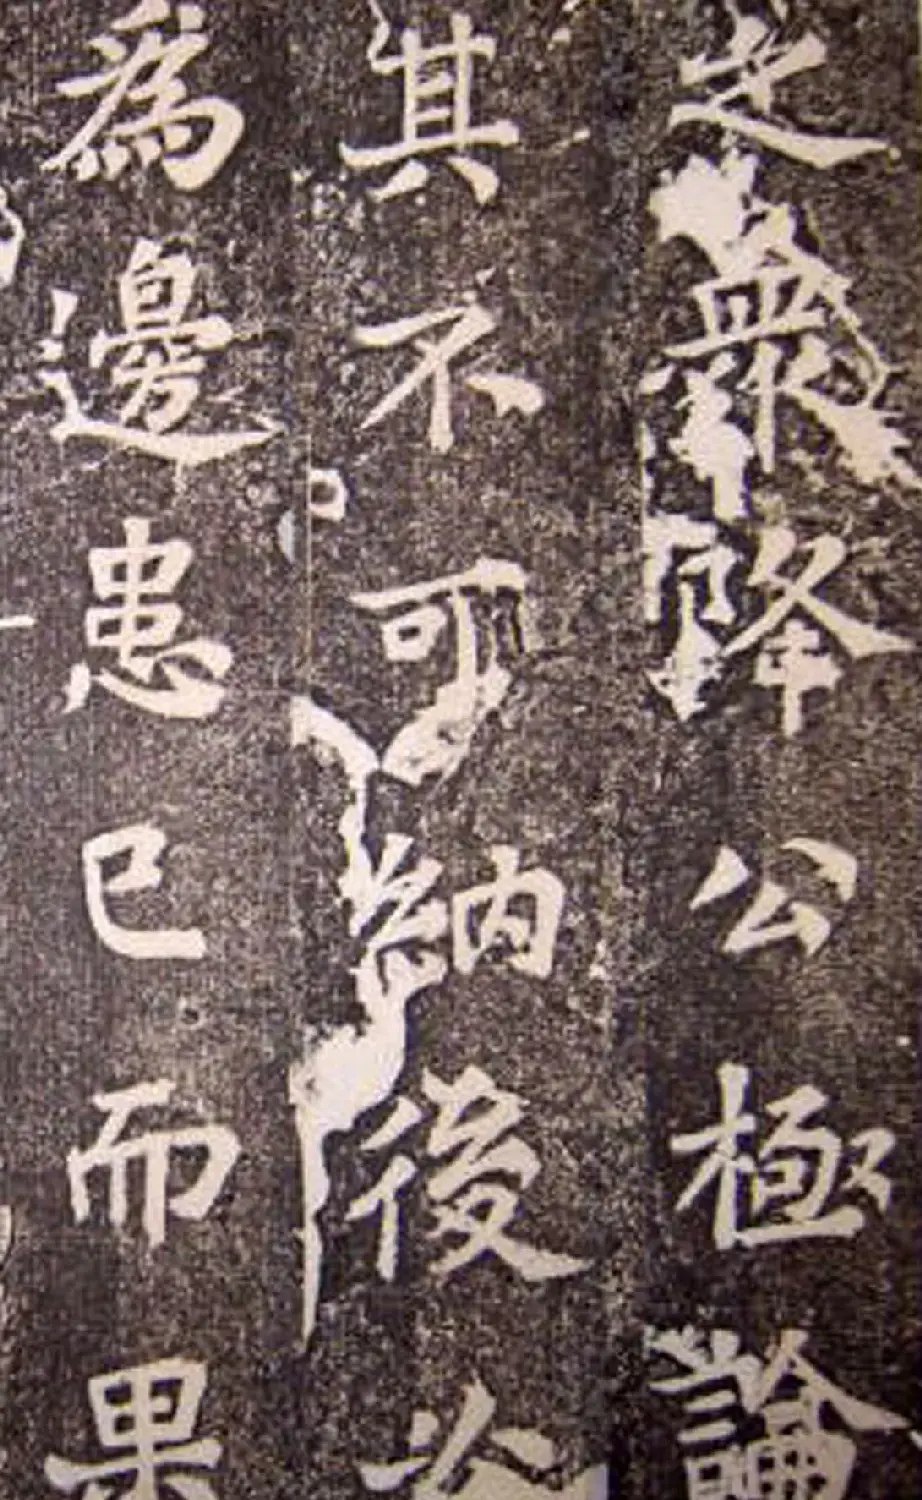 之衆降公極論
其不可納後必
為邊患已而果